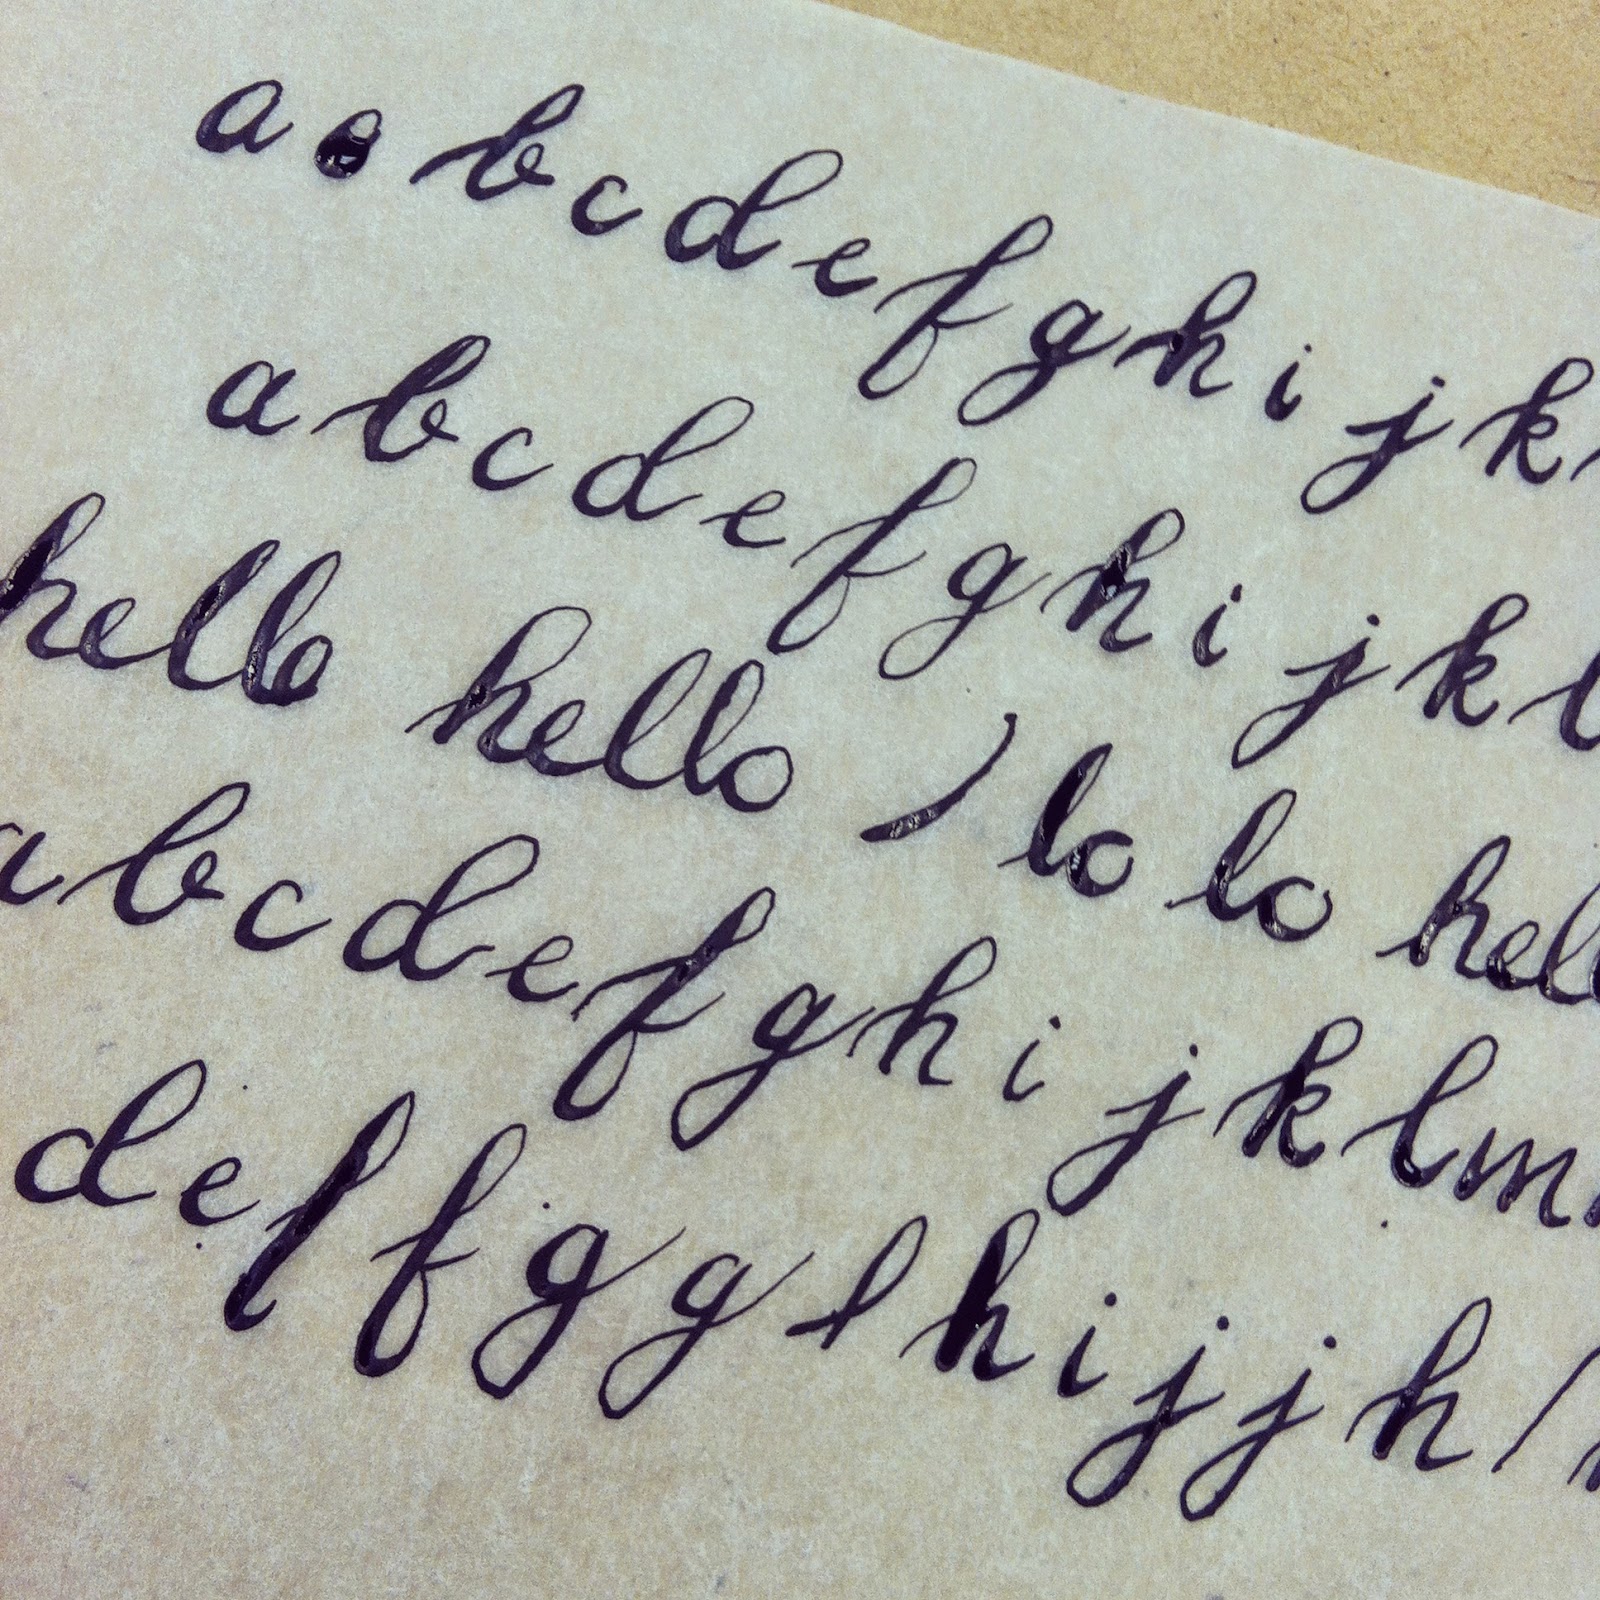 a b c d e f g h i j k
a b c d e f g h i j k l
hello hello lo lo hell
a b c d e f g h i j k l m
d e f f g g h i j j h